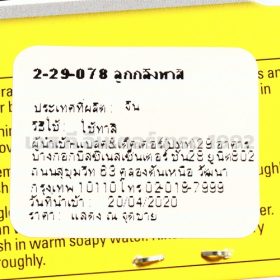 2-29-078 ลูกกลิ้งทาสี
ประเทศที่ผลิต : จีน
วิธีใช้ : ใช้ทาสี
ผู้นำเข้า อาคาร
บางกอกบิสซิเนสเซ็นเตอร์ ชั้น28 ยูนิต802
ถนนสุขุมวิท 63 คลองตันเหนือ วัฒนา
กรุงเทพ 10110 โทร 02-019-7999
วันที่นำเข้า : 20/04/2020
ราคา : แสดง ณ จุดขาย
sh in warm soapy water.
roughly.